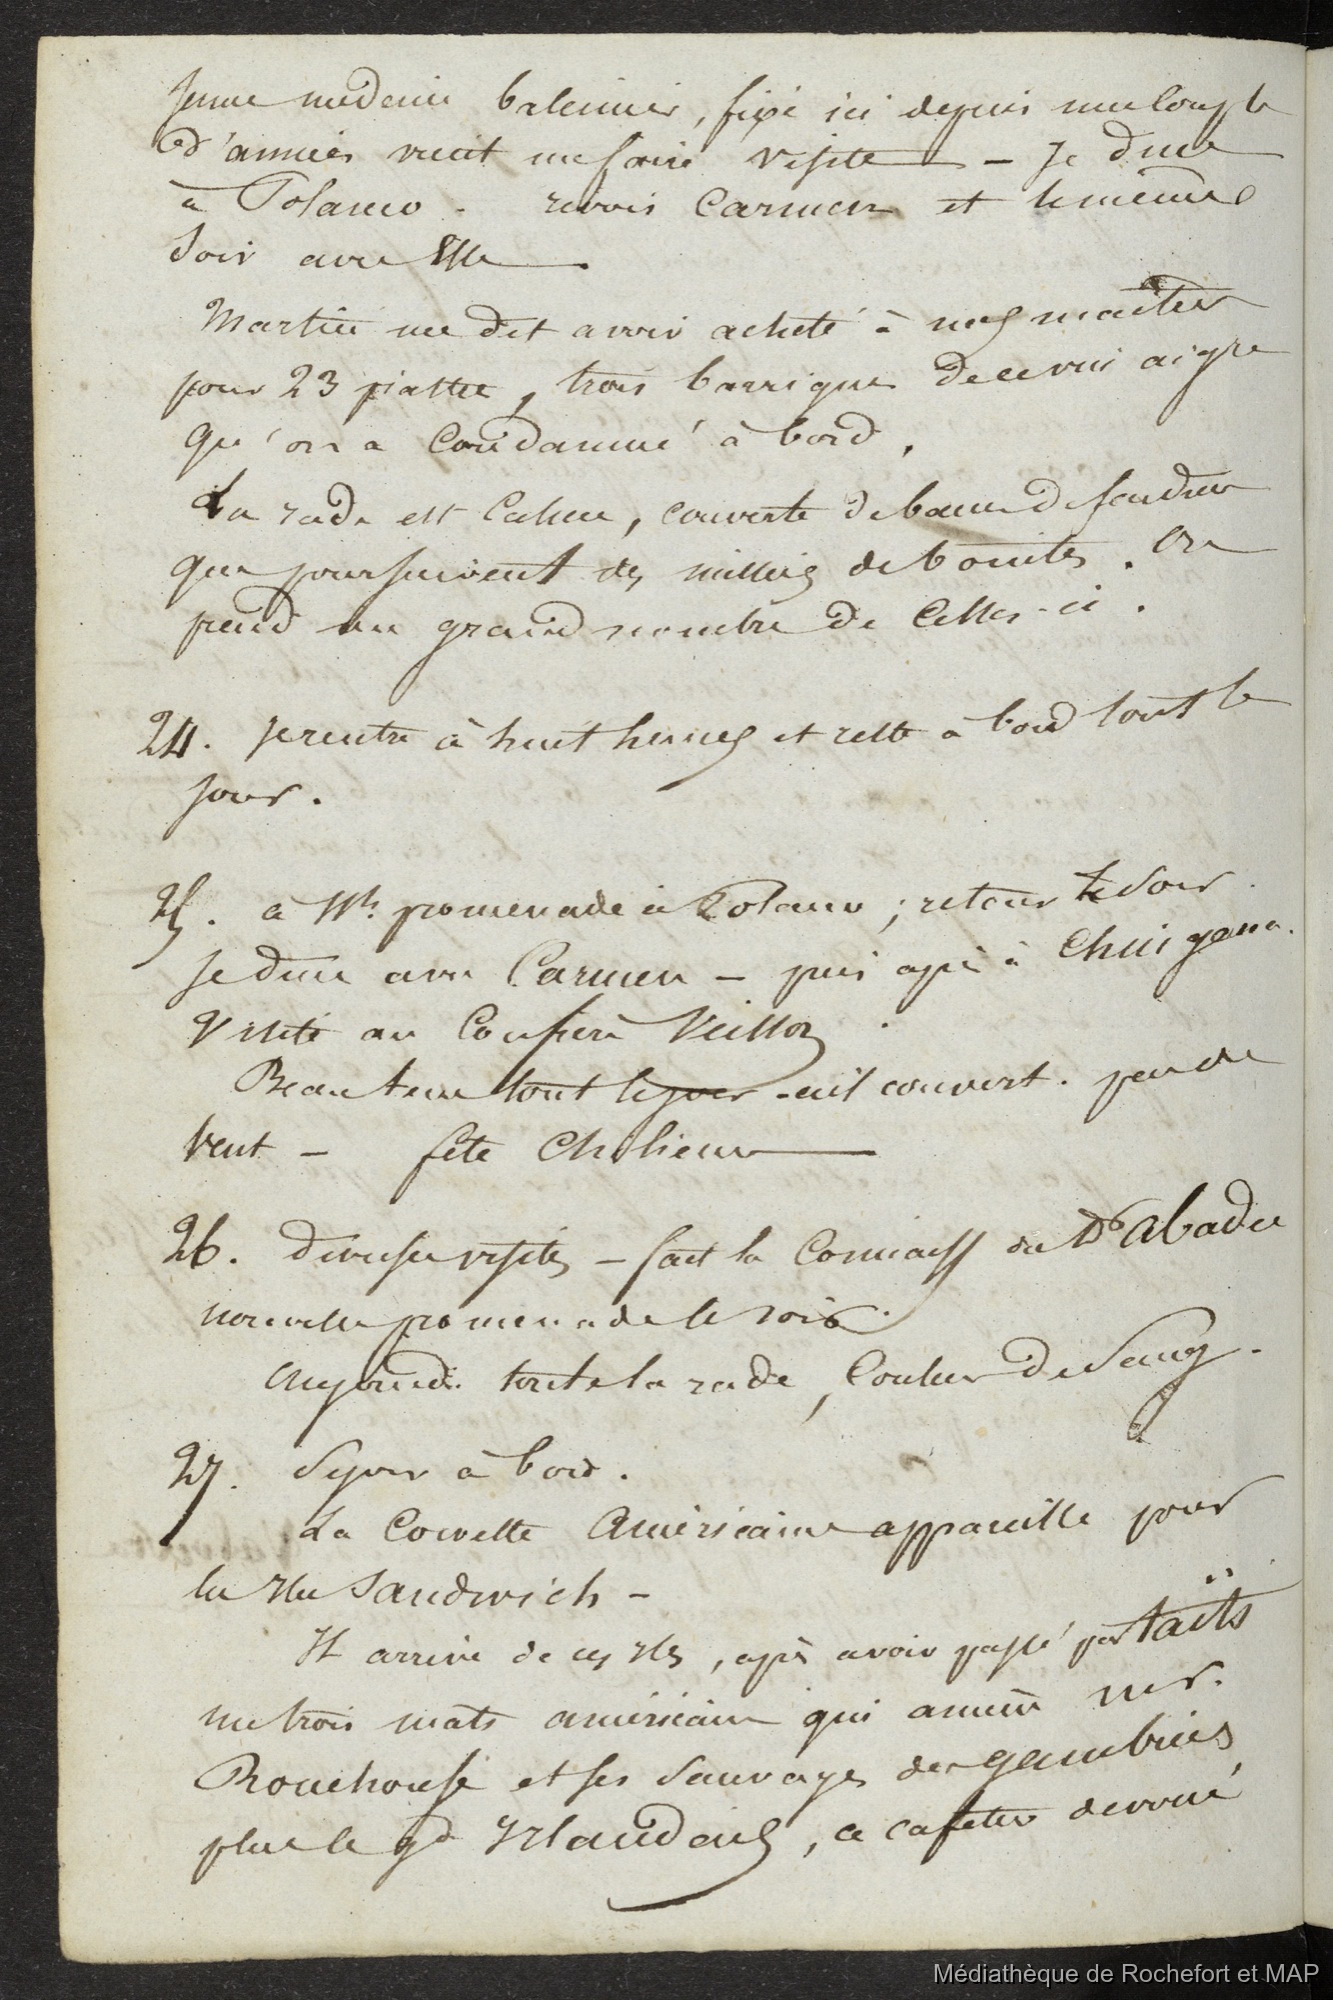 jeune medecin baleinier, fixé ici depuis une couple
d'années vient me faire visite — Je dine
à Polanco. revois Carmen et le même
soir avec Elle —
Martin me dit avoir acheté à nos maîtres
pour 23 piastre, trois barriques de ce vin aigre
qu'on a condamné à bord.
La rade est calme, couverte de bancs de
que poursuivent des milliers de bonites. On
prend un grand nombre de celles-ci.
24. Je rentre à huit heures et reste à bord tout le
jour.
25. à 11h. promenade à Polanco; retour le soir
Je dine avec Carmen — puis après à
Visite au Confrère Veillon
Beau temps tout le jour - ciel couvert. peu de
vent — fête Chilienne —
26. diverses visites — fait la connaiss du Dr Abadie
nouvelle promenade le soir.
Aujourd. toute la rade, Couleur de Sang.
27. Séjour à bord.
La Corvette Américaine appareille pour
les Iles Sandwich —
Il arrive de ces Iles, après avoir passé par Taïti
un trois mats américain qui amène mr.
Rouchouse et ses Sauvages des gambiers
plus le gd Irlandais, ce cafetier dévoué
Médiathèque de Rochefort et MAP